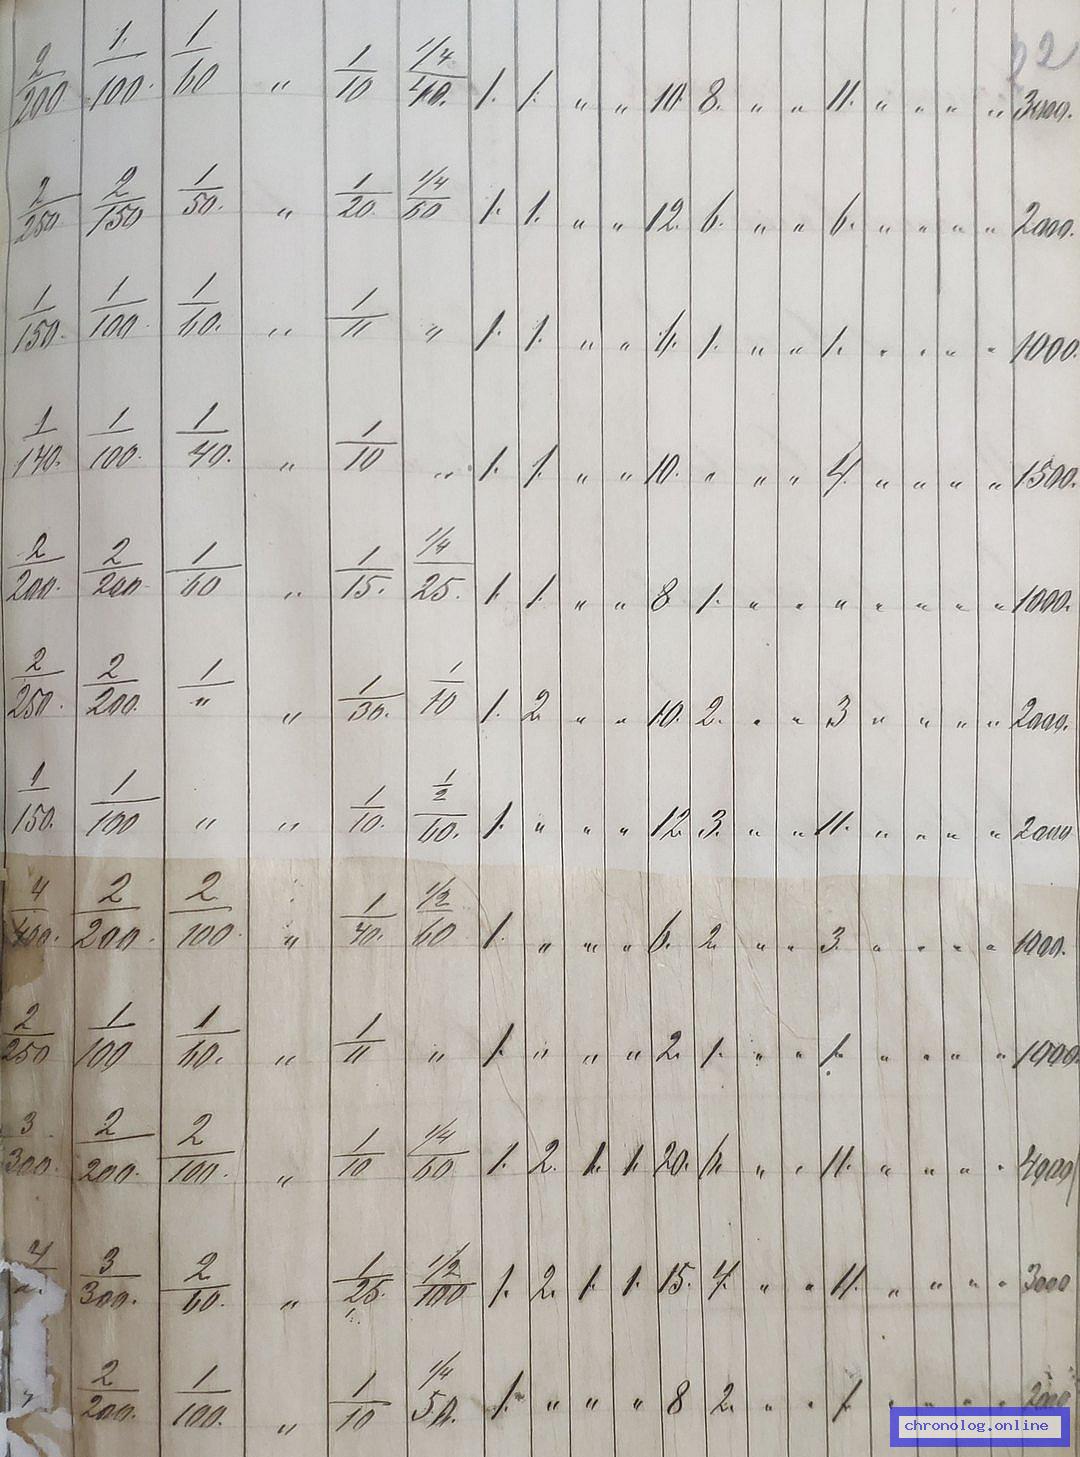 2/200 1/100. 1/60 " 1/10 1/4/40. 1. 1. " " 10. 8. " " 11. " " " " 3000.
2/250 2/150 1/50. " 1/20. 1/4/60 1. 1. " " 12. 6. " " 6. " " " " 2000.
1/150. 1/100. 1/60. " 1/" " 1. 1. " " 4. 1. " " 1. " " " " 1000.
1/140. 1/100. 1/40. " 1/10 " 1. 1. " " 10. " " " 4. " " " " 1500.
2/200. 2/200 1/60 " 1/15. 1/4/25. 1. 1. " " 8 1. " " " " " " " 1000.
2/250. 2/200. 1/" " 1/30. 1/10 1. 2. " " 10. 2. " " 3 " " " " 2000.
1/150. 1/100 " " 1/10. 1/2/60. 1. " " " 12. 3. " " 11. " " " " 2000
4/400. 2/200. 2/100. " 1/40. 1/2/60 1. " " " 6. 2. " " 3. " " " " 1000.
2/250 1/100 1/60. " 1/" " 1. " " " 2. 1. " " 1. " " " " 1000.
3/300. 2/200. 2/100. " 1/10 1/4/60. 1. 2. 1. 1. 20. 6. " " 11. " " " " 4000
4/ 3/300. 2/60. " 1/25. 1/2/100 1. 2. 1. 1. 15. 4. " " 11. " " " " 3000
2/200. 1/100. " 1/10 1/4/50. 1. " " " 8 2. " " 1. " " " " 2000
chronolog.online